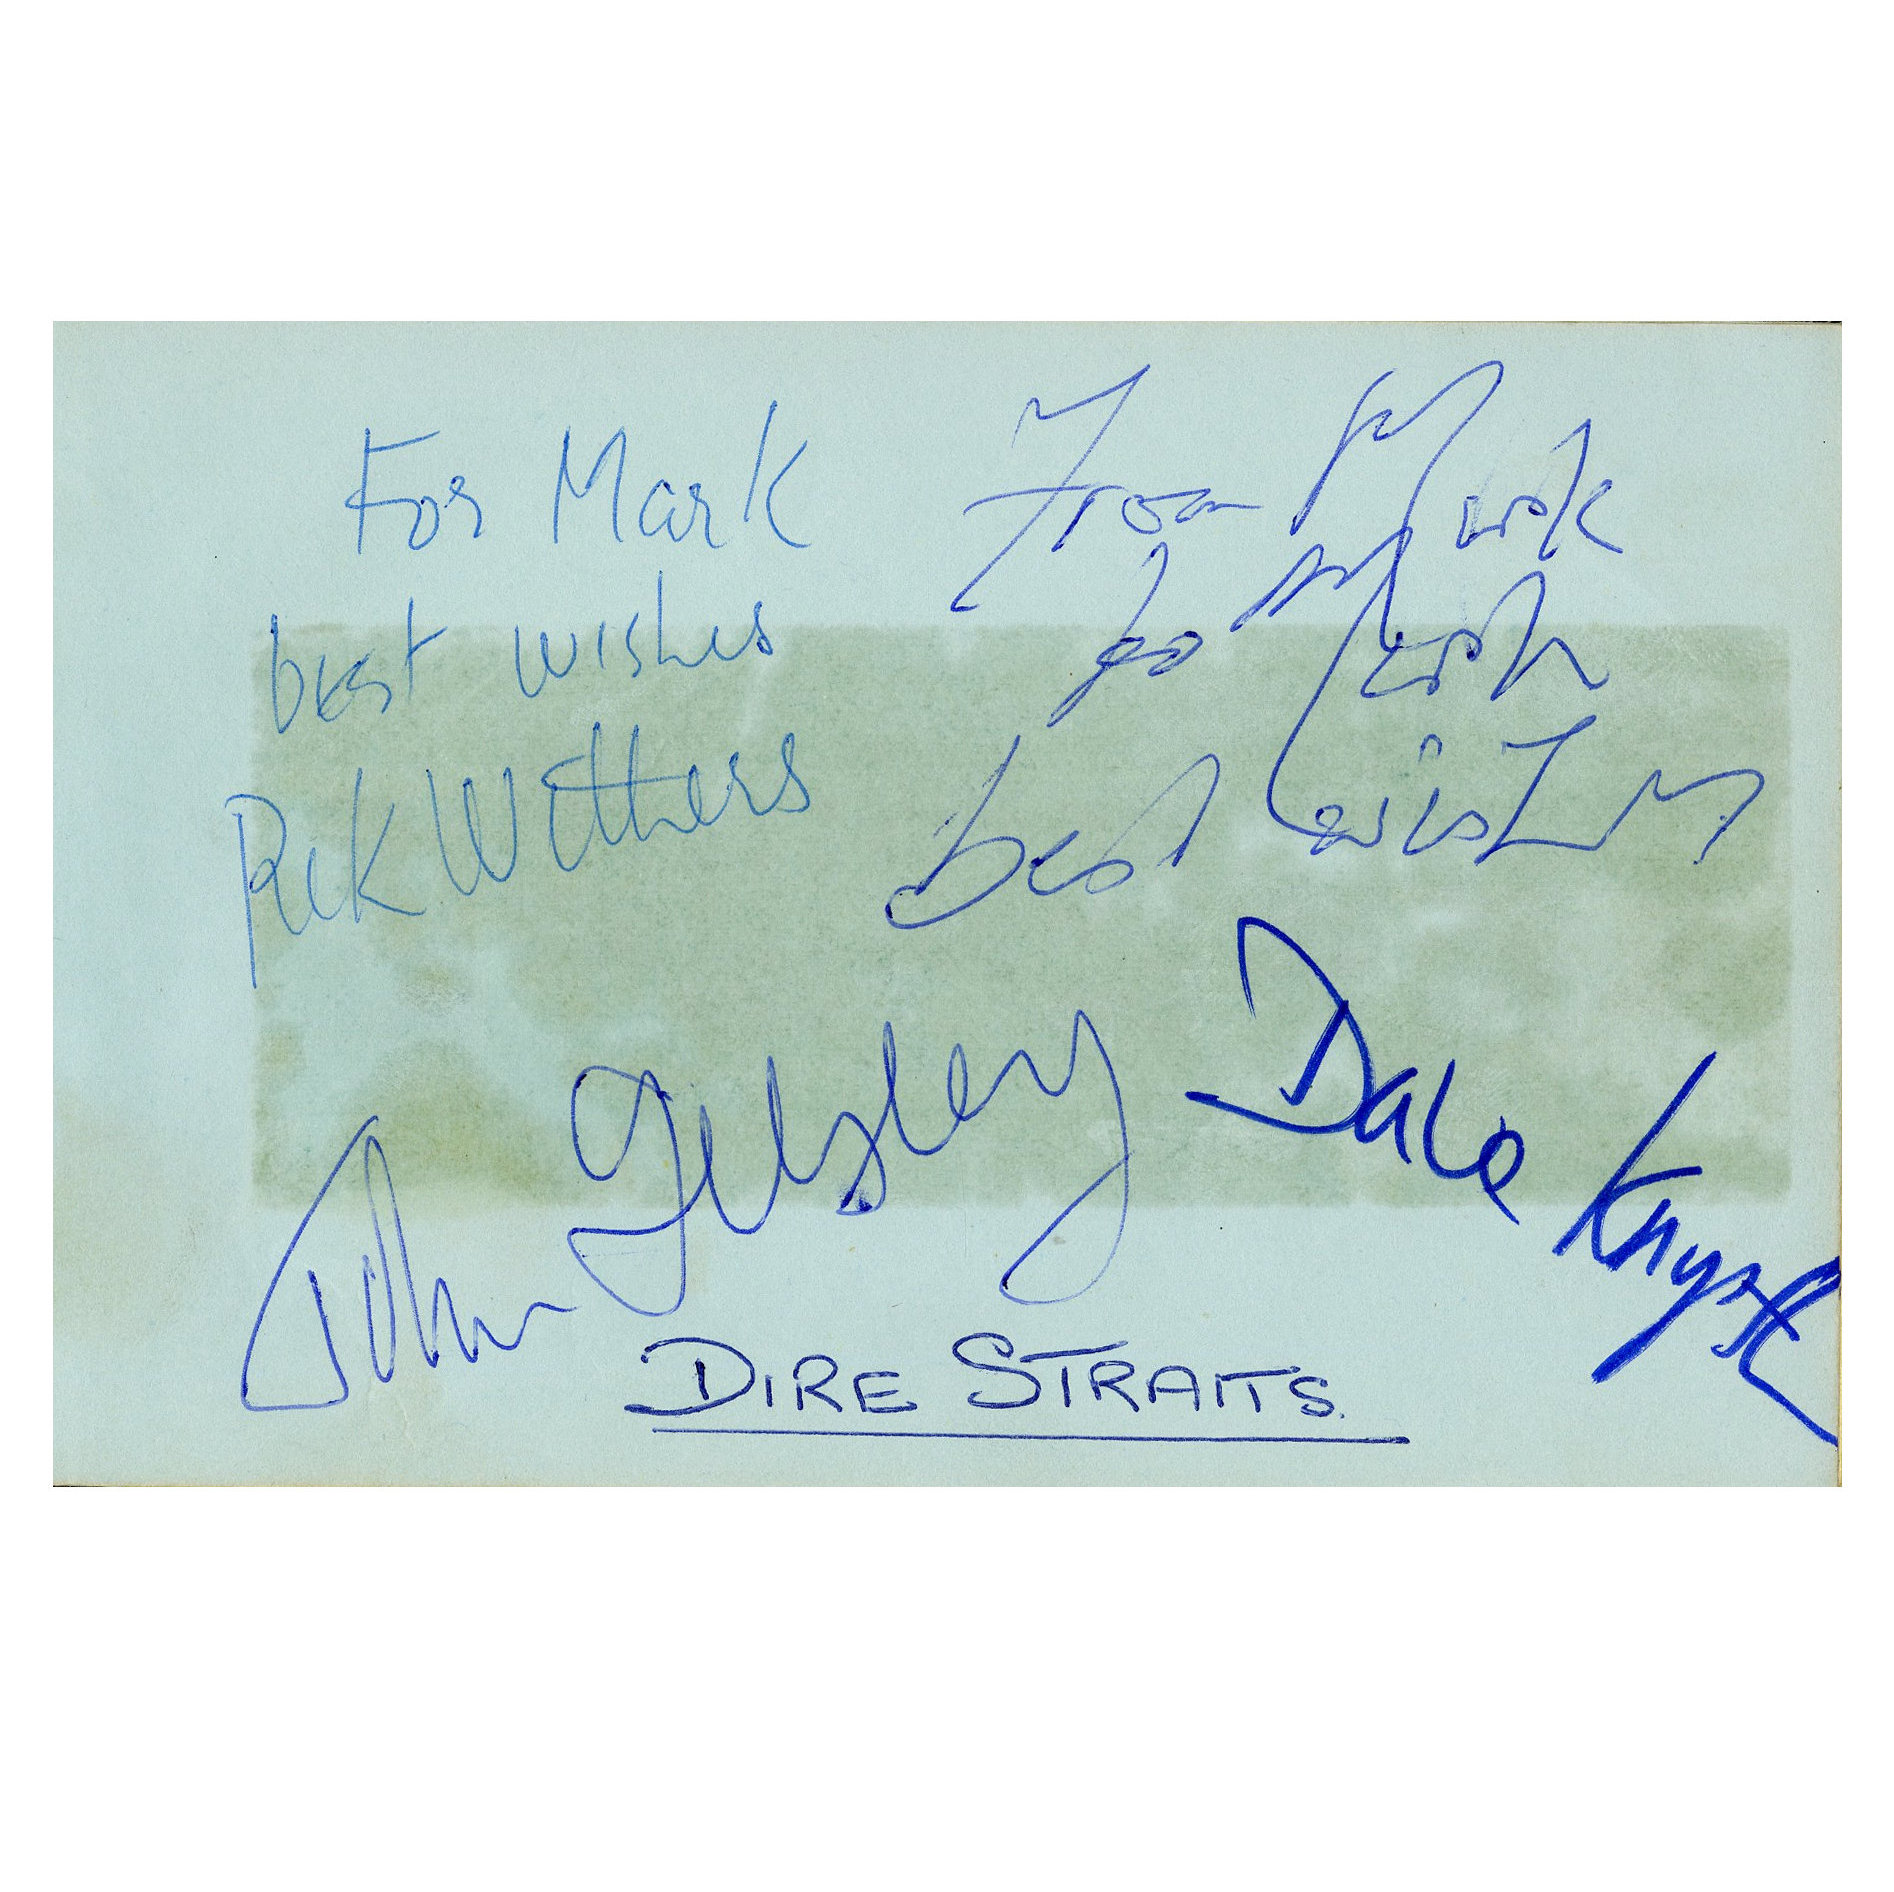 For Mark
best wishes
Pick Withers
From Mark
to Mark
best wishes
John Illsley
Dave Knopfler
DIRE STRAITS.